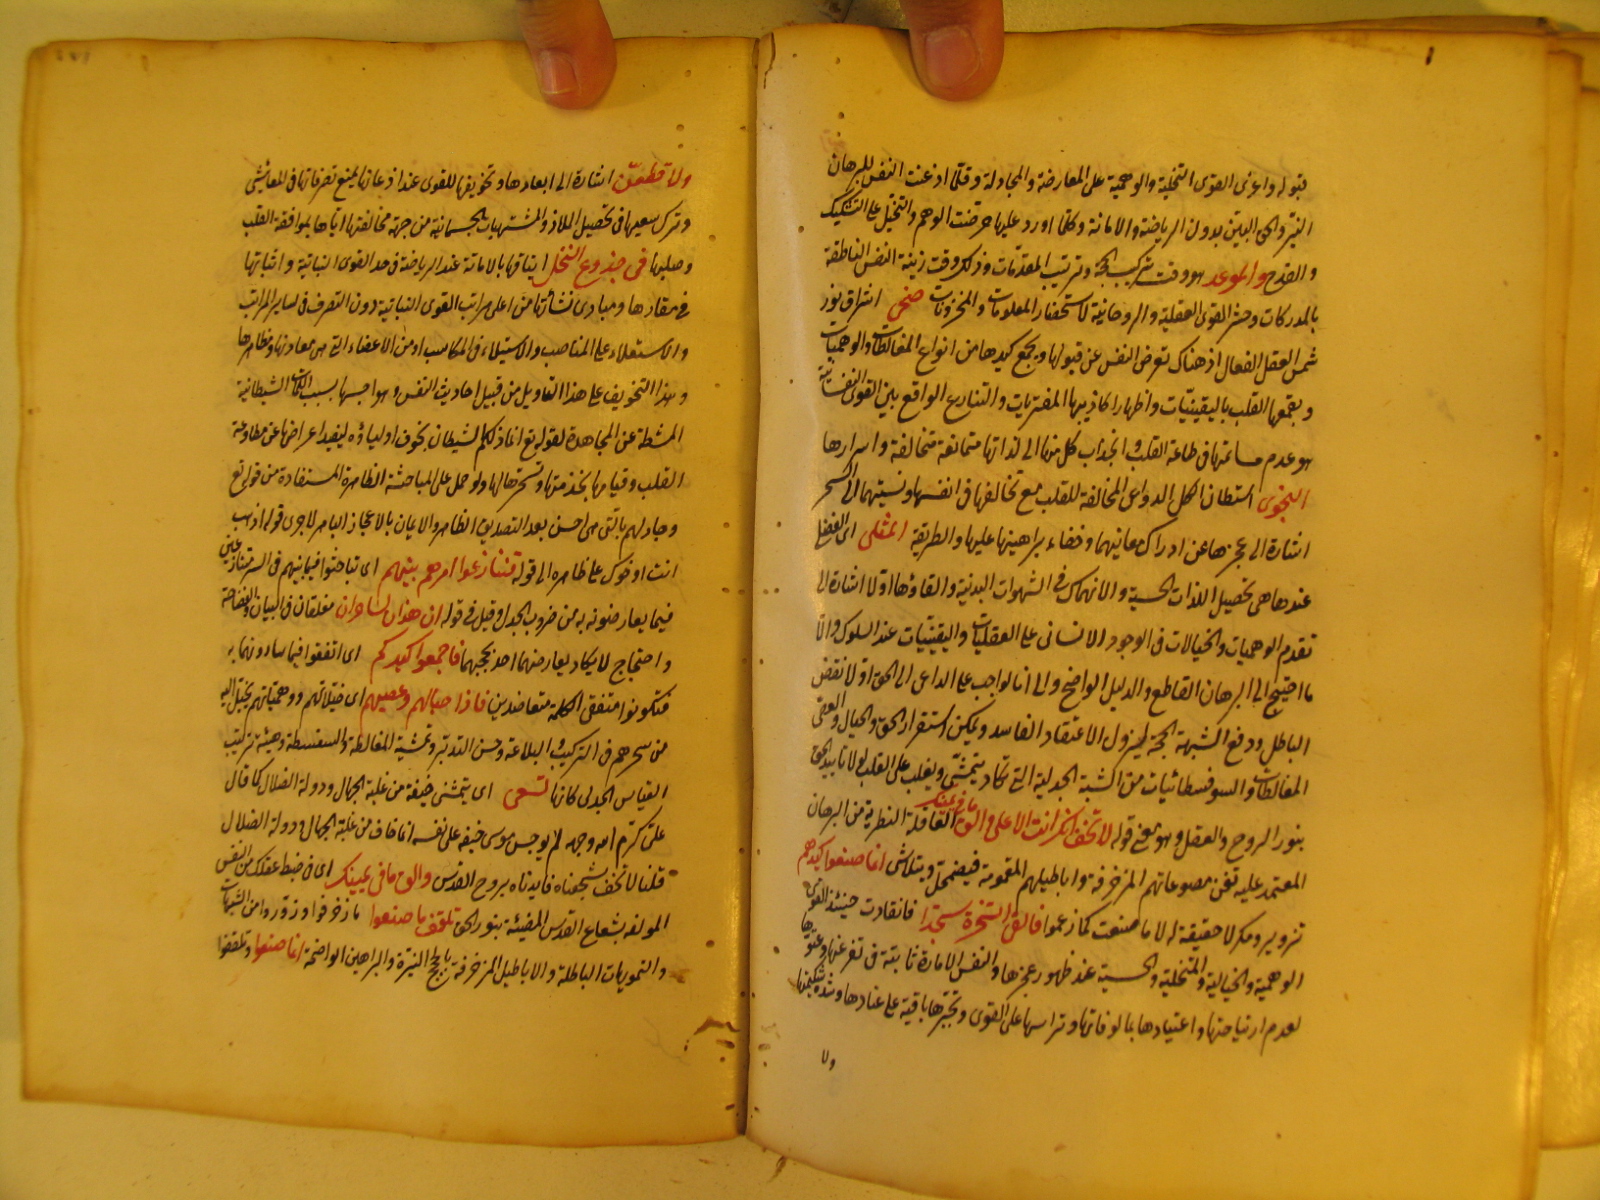 بقوله واعرض القوى التخيلية والوهمية على المعارضة والمجادلة وقلما اذعنت النفس للبرهان
النير والحق البين بدون الرياضة والاماتة وكلما اورد عليها حرضت الوهم والتخيل على التشكيك
والقدح والموعد هو وقت تركيب الحجة وترتيب المقدمات وذلك وقت زينة النفس الناطقة
بالمدركات وحشر القوى العقلية والروحانية لاستحضار المعلومات والمخزونات ضحى اشراق نور
شمس العقل الفعال اذ هناك تعرض النفس عن قبولها ويجمع كيدها من انواع المغالطات والوهميات
ويقمعها القلب باليقينيات واظهار اكاذيبها المفتريات والتنازع الواقع بين القوى النفسانية
هو عدم مسالمتها في طاعة القلب وانجذاب كل منها الى لذاتها متمانعة متخالفة واسرارها
النجوى استبطان الكل الدواعى المخالفة للقلب مع تخالفها في انفسها ونسبتهما الى السحر
اشارة الى عجزها عن ادراك معانيهما وخفاء براهينها عليها والطريقة المثلى اى الفضلى
عندها هى تحصيل اللذات الحسية والانهماك في الشهوات البدنية والقاؤها اولا اشارة الى
تقدم الوهميات والخيالات في الوجود الانسانى على العقليات واليقينيات عند السلوك والا
ما احتيج الى البرهان القاطع والدليل الواضح والى انما الواجب على الداعى الى الحق اولا نقض
الباطل ودفع الشبهة بالحجة ليزول الاعتقاد الفاسد ويمكن استقرار الحق والخيال والعصى
المغالطات والسوفسطائيات من الشبة الجدلية التى تكاد يتمشى ويغلب على القلب لولا تأييد الحق
بنور الروح والعقل وهو معنى قوله لا تخف انك انت الاعلى والق ما في يمينك العاقلة النظرية من البرهان
المعتمد عليه تفن مصنوعاتهم المزخرفة واباطيلهم المموهة فيضمحل ويتلاشى انما صنعوا كيدهم
تزوير ومكر لا حقيقة له لا ما صنعت كما زعموا فالقى السحرة سجدا فانقادت حينئذ القوى
الوهمية والخيالية والمتخيلة والحسية عند ظهور عجزها والنفس الامارة ثابتة في تفرعنها وعتوها
لعدم ارتياضتها واعتيادها بمالوفاتها وتراسها على القوى وتجبرها باقية على عنادها وشدة شكيمتها
ولا
ولاقطعن اشارة الى ابعادها وتخويفها للقوى عند اذعانها بمنع تصرفاتها في المعايش
وترك سعيها في تحصيل اللذات والمشتهيات الجسمانية من جهة مخالفتها اياها بموافقة القلب
وصلبها في جذوع النخل ايثاقها بالاماتة عند الرياضة في حد القوى النباتية واثباتها
في مقارها ومبادى نشأتها من اعلى مراتب القوى النباتية دون التصرف في سائر المراتب
والاستعلاء على المناصب والاستيلاء في المكاسب او من الاعضاء التى هى معادنها ومظاهرها
وهذا التخويف على هذا التاويل من قبيل احاديث النفس وهواجسها بسبب الملكات الشيطانية
المثبطة عن المجاهدة لقوله تع انما ذلكم الشيطان يخوف اولياؤه ليفيد اعراضها عن مطاوعة
القلب وقيامها بخدمتها وتسخرها لها ولو حمل على المباحثة الظاهرة المستفادة من قوله تع
وجادلهم بالتى هى احسن بعد التصديق الظاهر والايمان بالاعجاز الباهر لاجرى قوله اذهب
انت اوخوك على ظاهره الى قوله فتنازعوا امرهم بينهم اى تباحثوا فيما بينهم في السر متنازعين
فيما يعارضونه به من ضروب الجدل وقيل في قوله ان هذان لساحران مفلقان في البيان والفصاحة
واحتجاج لا يكاد يعارضهما احد بحججهما فاجمعوا كيدكم اى اتفقوا فيما ساررتما به
فتكونوا متفقى الكلمة متعاضدين فاذا حبالهم وعصيهم اى مخيلاتهم ووهمياتهم يخيل اليه
من سحرهم في التركيب والبلاغة وحسن التدبر وتمشية المغالطة والسفسطة وهيئة تركيب
القياس الجدلى كانها تسعى اى يتمشى خيفة من غلبة الجهال ودولة الضلال كما قال
على كرم الله وجهه لم يوجس موسى خيفة على نفسه انما خاف من غلبة الجهال ودولة الضلال
قلنا لا تخف شجعناه فايدناه بروح القدس والق ما في يمينك اى في ضبط عقلك من النفس
المولفة بشعاع القدس المضيئة بنور الحق تلقف ما صنعوا ما زخرفوا وزوروا من الشبهات
والتمويهات الباطلة والاباطيل المزخرفة بالحجج النيرة والبراهين الواضحة انما صنعوا وتلقفوا